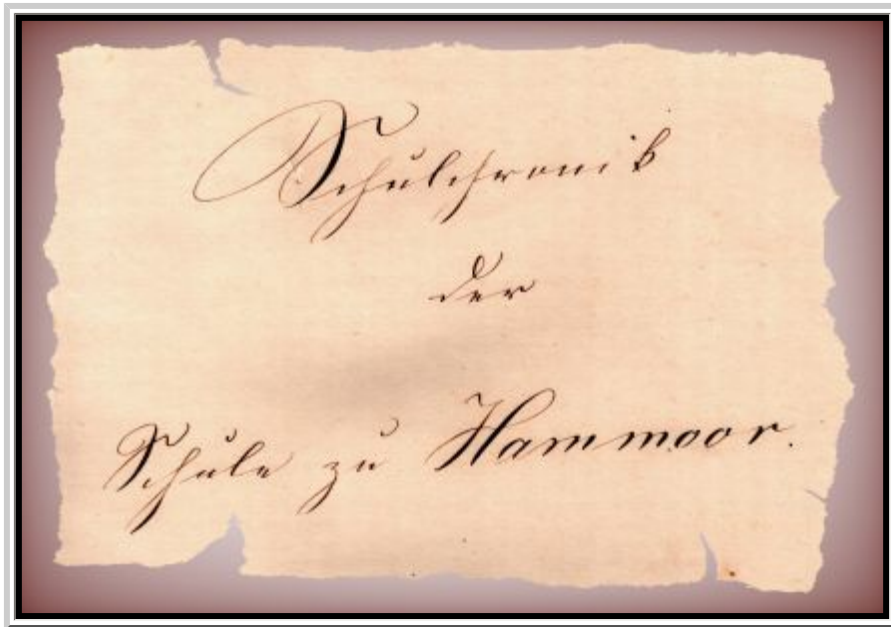 Schulchronik
der
Schule zu Hammoor.